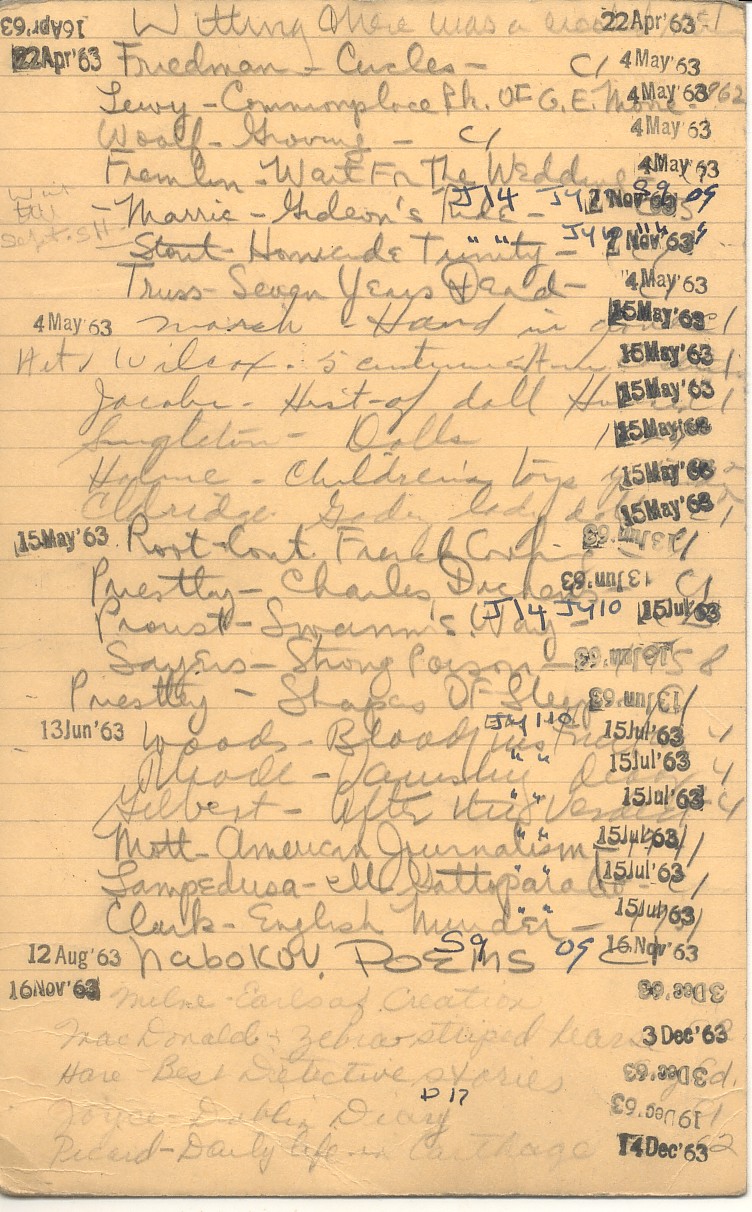 16Apr'63 Witting There was a 22Apr'63
22Apr'63 Friedman - Circles - C1 4May'63
Lewy - Commonplace Bk. OF G. E. Moore - 1962 4May'63
Woolf - Growing - C1 4May'63
Fremlin - Wait For The Wedding 4May'63
Wait
Till
Sept. SH
- Marric - Gideon's Ride - J14 S9 09 7Nov'63
Stout - Homicide Trinity - " " " " 7Nov'63
Truss - Seven Years Dead - 4May'63
4May'63 March - Hand in 1 15May'63
Wilcox - 5 centuries 15May'63
Jacobs - Hist - of doll Houses 1 15May'63
Singleton - Dolls 1 15May'63
Holme - Children's toys 15May'63
Eldridge 15May'63
15May'63 Root - Cont. French Cooking C1 13Jun'63
Priestley - Charles Dickens - C1 13Jun'63
Proust - Swann's Way - J14 JY10 15Jul'63
Sayers - Strong Poison - 1958 13Jun'63
Priestley - Shapes OF Sleep 13Jun'63
13Jun'63 Woods - Bloody 4 15Jul'63
Rhode - Vanishing 4 15Jul'63
Gilbert - After the Verdict - 4 " " 15Jul'63
Mott - American Journalism " " 15Jul'63
Lampedusa - Il Gattopardo - C1 " " 15Jul'63
Clark - English Murder - " " 15Jul'63
12Aug'63 Nabokov. POEMS S9 09 C1 16Nov'63
16Nov'63 Milne - Earls of Creation 3Dec'63
MacDonald - Zebra - striped hearse 3Dec'63
Hare - Best Detective stories Ed. 3Dec'63
Joyce - Dublin Diary D17 C1 19Dec'63
Picard - Daily life in Carthage 62 14Dec'63